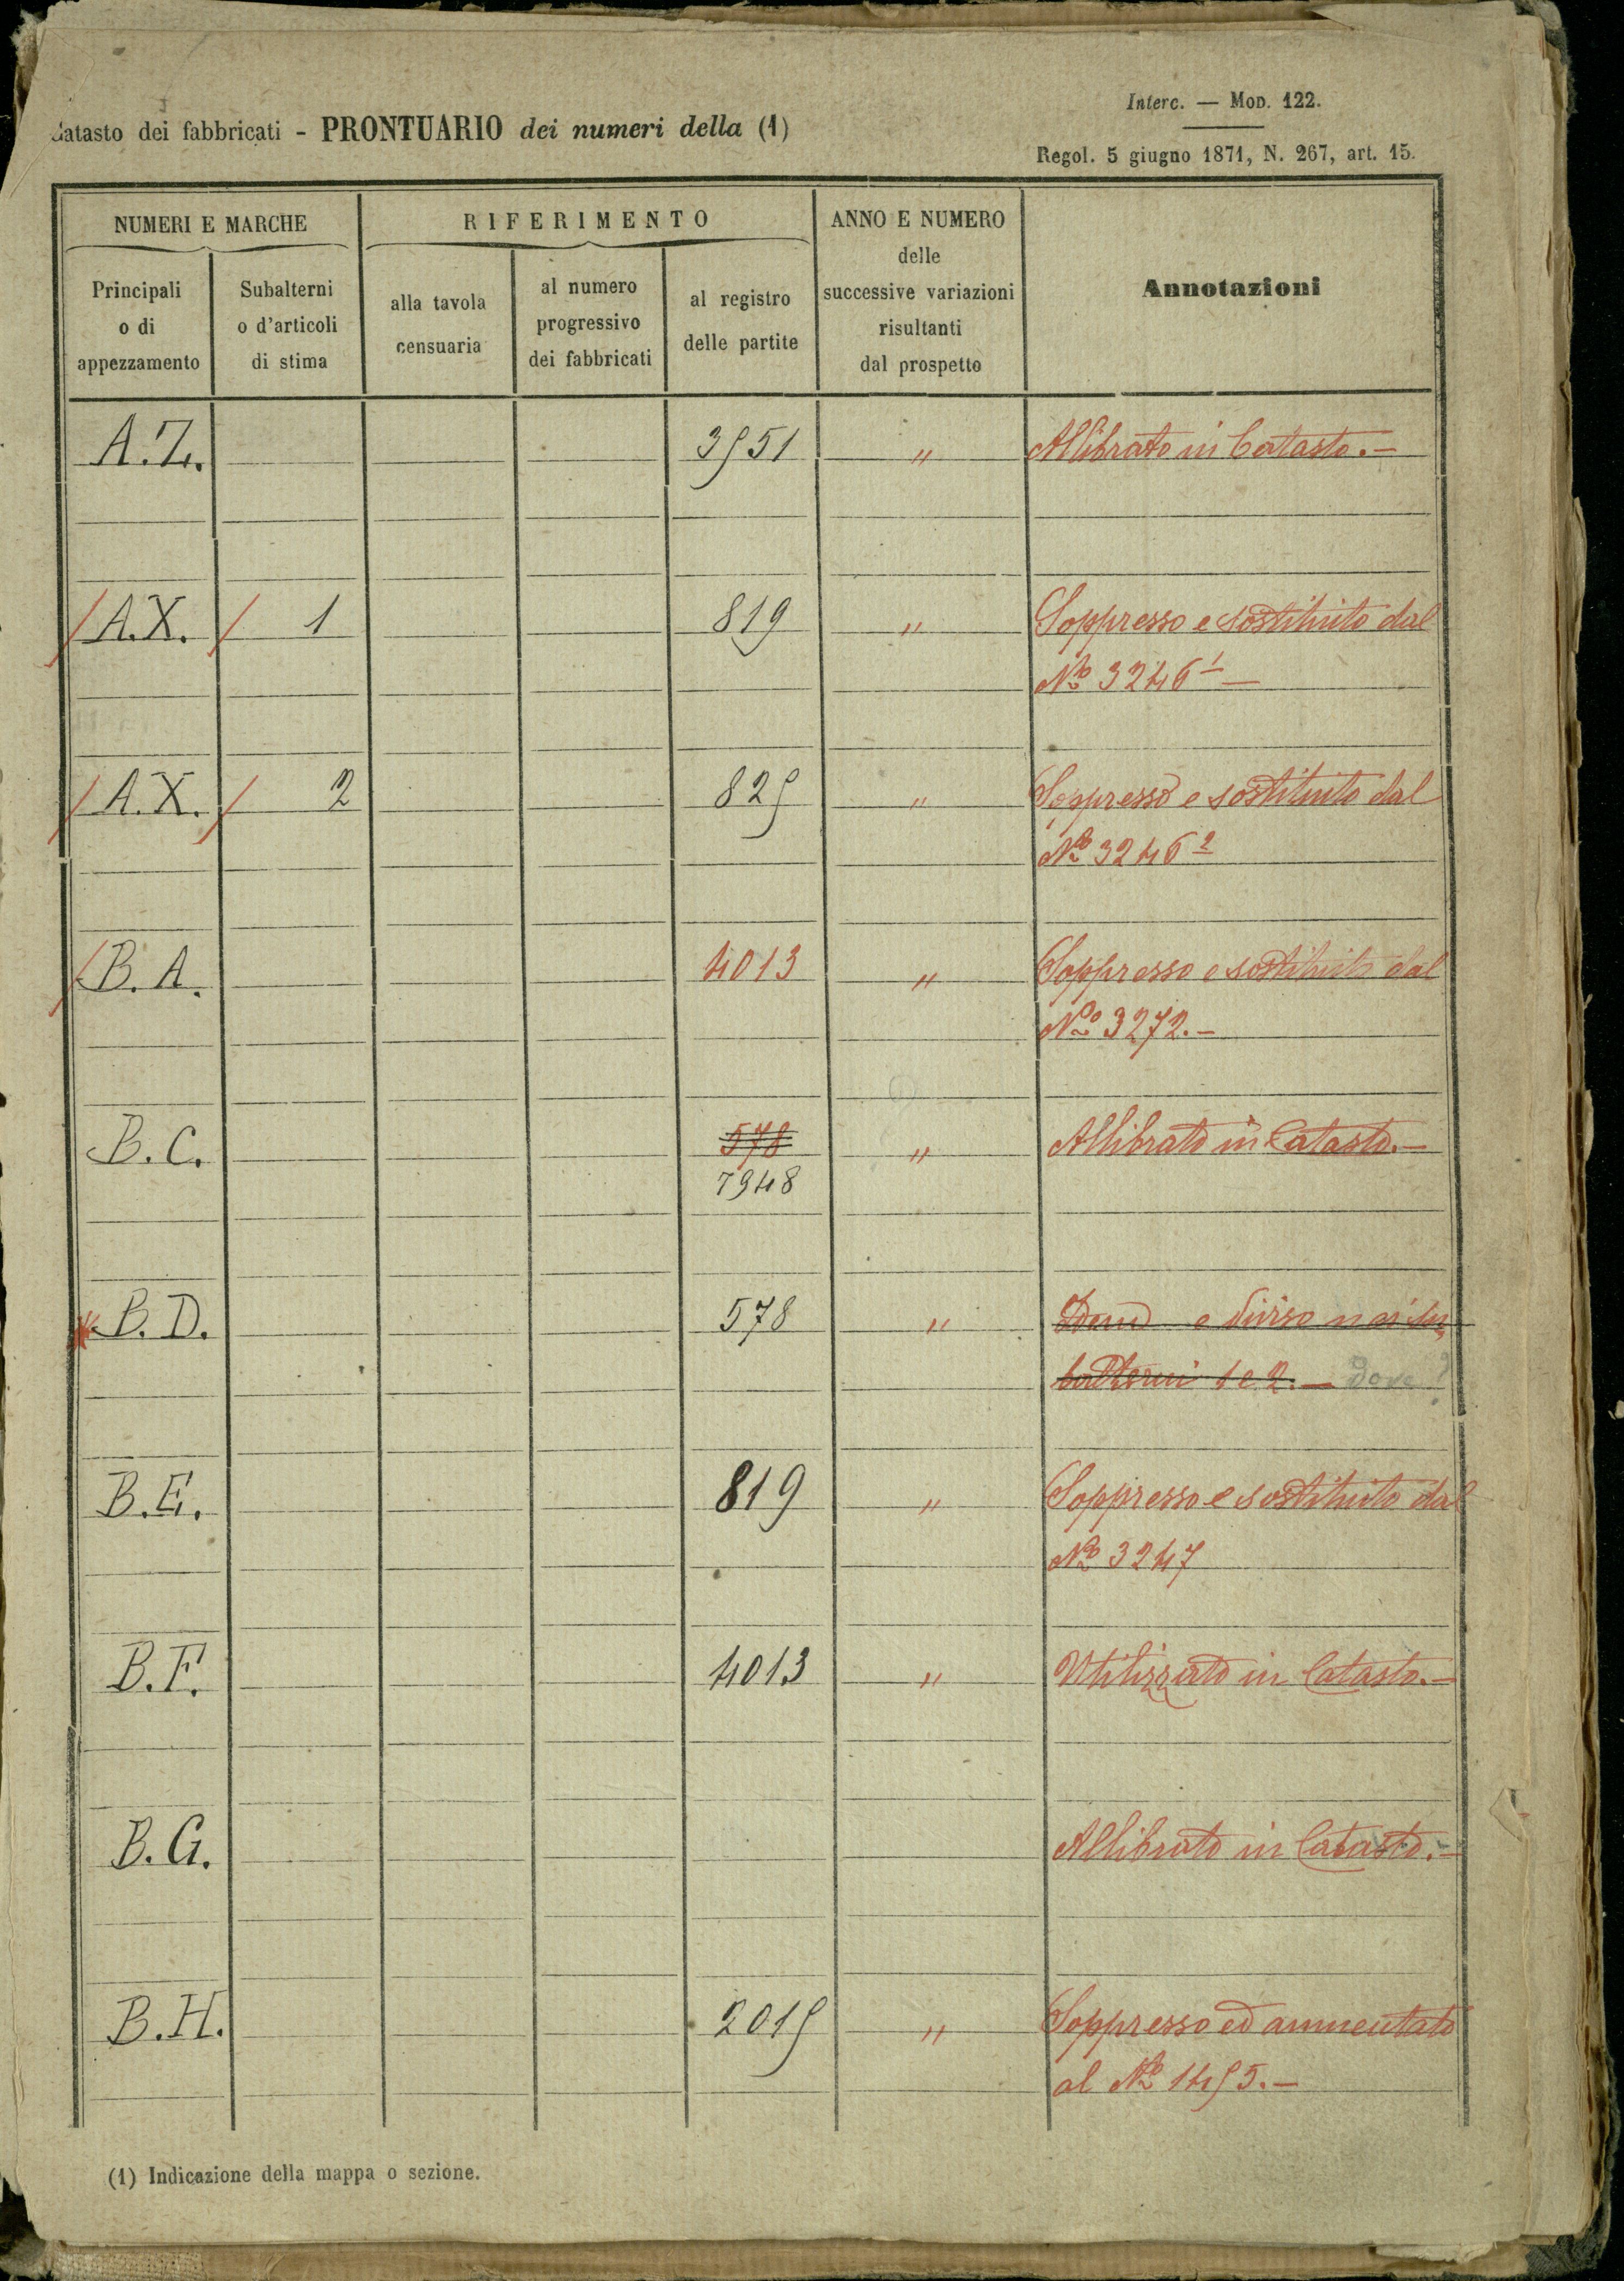 Catasto dei fabbricati - PRONTUARIO dei numeri della (1)
Interc. — Mod. 122.
Regol. 5 giugno 1871, N. 267, art. 15.
NUMERI E MARCHE
RIFERIMENTO
ANNO E NUMERO
delle
successive variazioni
risultanti
dal prospetto
Annotazioni
Principali
o di
appezzamento
Subalterni
o d'articoli
di stima
alla tavola
censuaria
al numero
progressivo
dei fabbricati
al registro
delle partite
A.Z. 3551 " Allibrato in Catasto.—
A.X. 1 819 " Soppresso e sostituito dal
No 3246 1 —
A.X. 2 825 " Soppresso e sostituito dal
No 3246 2
B.A. 4013 " Soppresso e sostituito dal
No 3272.—
B.C. 578 " Allibrato in Catasto.—
7948
B.D. 578 " Idem e diviso nei su
balterni 1 e 2.— Dove?
B.E. 819 " Soppresso e sostituito dal
No 3247
B.F. 4013 " Utilizzato in Catasto.—
B.G. Allibrato in Catasto.—
B.H. 2015 " Soppresso ed aumentato
al No 1455.—
(1) Indicazione della mappa o sezione.